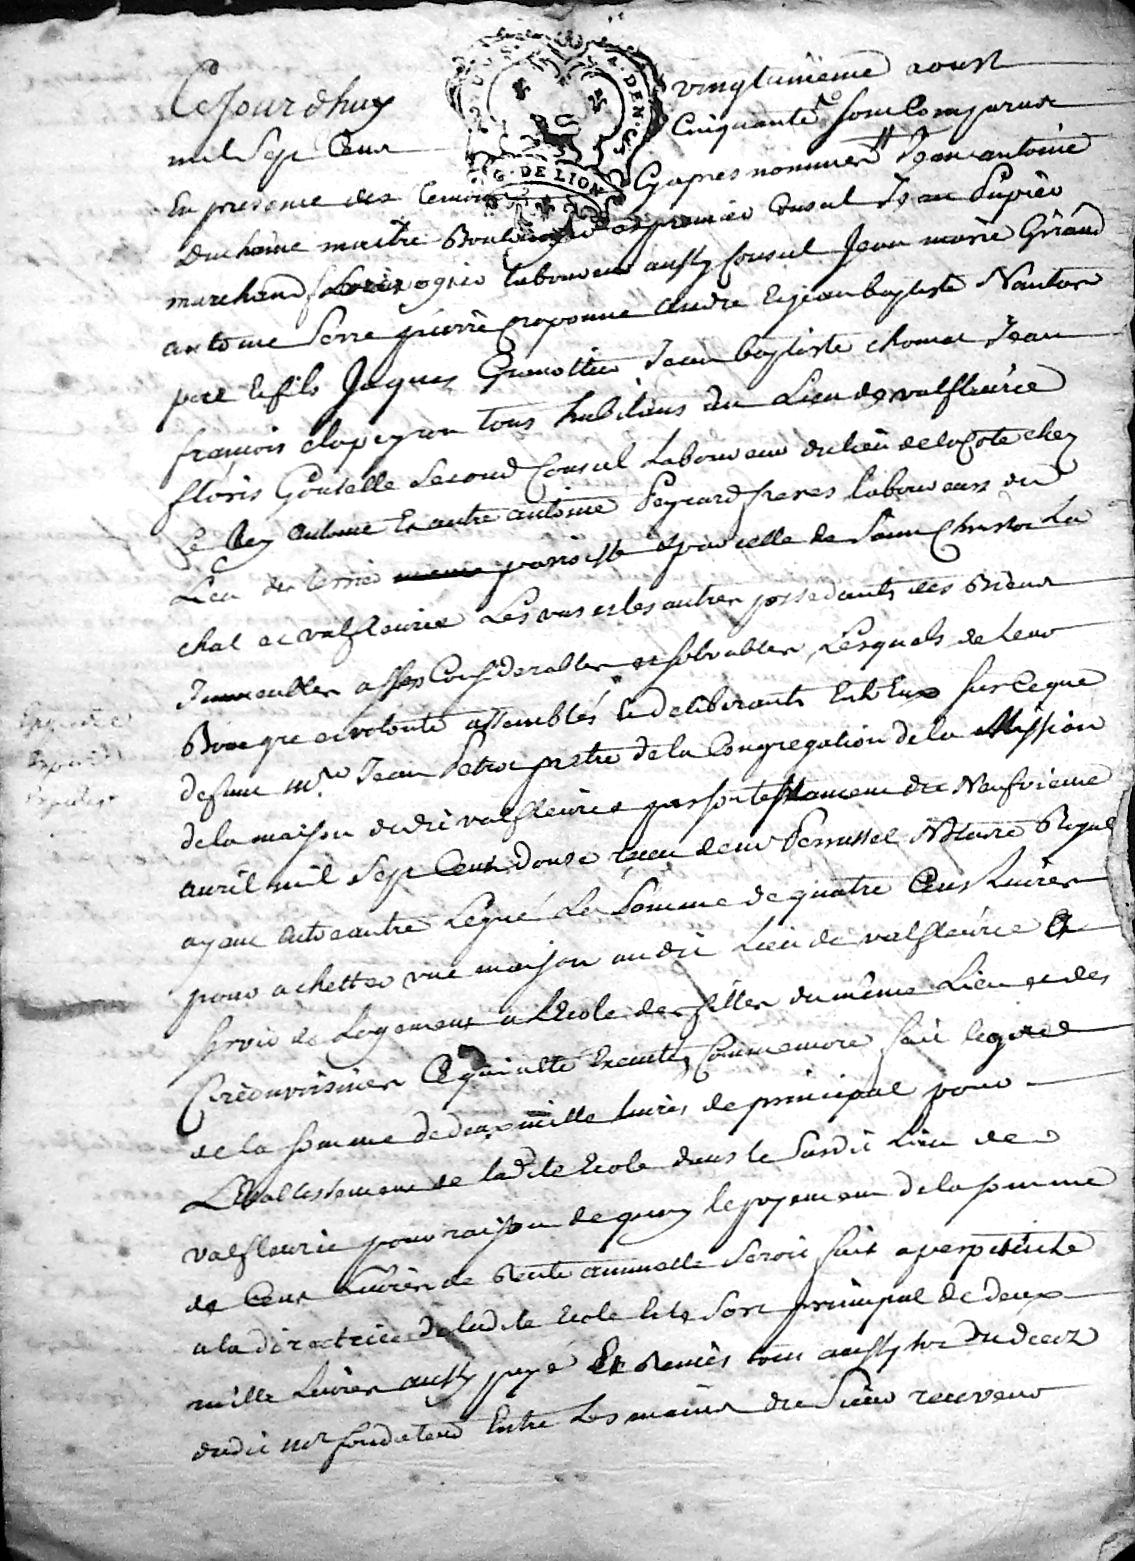 Cejourdhuy vingtunieme aoust
mil sept Cent Cinquante sont Comparus
G. DE LION
En presence des temoins Cyapres nommés Jean antoine
Duchaine maitre Boulanger et premier Consul Jean Pupier
marchand laboureur aussy Consul Jean marie Girard
antoine Serre pierre Croponne andré et jean baptiste Nantas
pere et fils Jaques Grenottier Jean baptiste chomat Jean
françois clapeyron tous habitans du Lieu de valfleurie
floris Goutelle Second Consul Laboureur du lieu de la Cote chez
Le Rey antoine Et autre antoine Peyrard freres laboureurs du
Lieu du paroisse parcelle de Saint Christo La
chal et valfleurie Les uns et les autres possedants des Biens
Immeubles assés Considerables et solvables, Lesquels de leur
Bon gre et volonté assemblés Et deliberants Entr'Eux sur Ceque
defunt mr. Jean Petrot pretre de la Congregation de la Mission
de la maison dudit valfleurie par son testament du Neufvieme
avril mil Sept Cent douse reçeu de me Perrussel Notaire Royal
ayant Entre autre Legué La Somme de quatre Cens Livres
pour achetter une maison audit Lieu de valfleurie
servir de Logement a l'Ecole des filles du même Lieu et des
Circonvoisines Ce qui a été Executé, Comme encore fait legat
de la somme de deux mille livres de principal pour
L'Etablissement de ladte Ecole dans le Susdit Lieu de
valfleurie pour raison de quoy le payement de la somme
de Cent Livres de Rente annuelle Seroit fait a perpetuité
a la directrice de ladte Ecole Et le Sort principal de deux
mille Livres aussy payé Et Remis tout aussytot du deces
dudit mr fondateur Entre Les mains du Sieur receveur